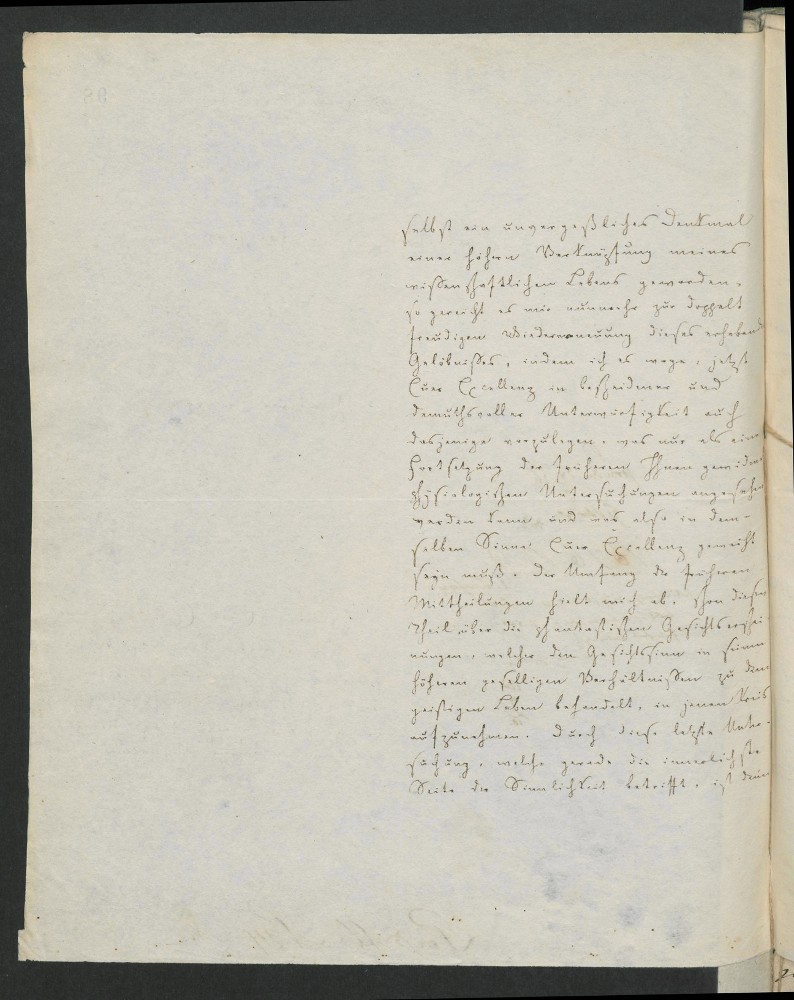 selbst ein unvergeßliches Denkmal
einer höhern Verknüpfung meines
wissenschaftlichen Lebens geworden,
so gereicht es mir nunmehr zur doppelt
freudigen Wiedererneuung dieses erhabend
Gelöbnisses, indem ich es wage, jetzt
Euer Excellenz in bescheidner und
demuthsvoller Unterwürfigkeit auch
dasjenige vorzulegen, was nur als eine
Fortsetzung der früheren Ihnen gewidme
physiologischen Untersuchungen angesehen
werden kann und was also in dem-
selben Sinne Euer Excellenz geweiht
seyn muß. Der Umfang der früheren
Mittheilungen hielt mich ab, schon diesen
Theil über die phantastischen Gesichtserschei
nungen, welcher den Gesichtssinn in seinen
höheren geselligen Verhältnissen zu dem
geistigen Leben behandelt, in jenen Kreis
aufzunehmen. Durch diese letzte Unter-
suchung, welche gerade die innerlichste
Seite der Sinnlichkeit betrifft, ist denn